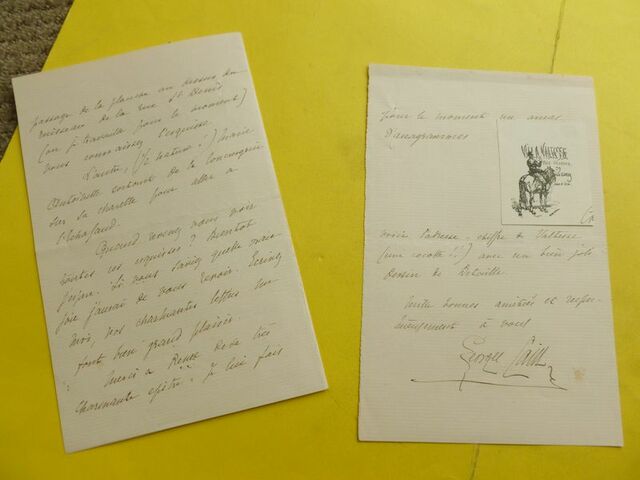 passage de la planche au dessus du
ruisseau de la rue St Denis
(on y travaille pour le moment)
vous connaissez l'esquisse
L'autre, (1/2 nature !) Marie
Antoinette sortant de la Conciergerie
sur la charette pour aller à
l'échafaud.
Quand venez vous voir
toutes ces esquisses ? bientôt
j'espère. Si vous saviez quelle vraie
joie j'aurai de vous revoir. Ecrivez
moi, vos charmantes lettres me
font bien grand plaisir.
Merci à Renée de sa très
charmante epître. Je lui fais
pour le moment un amas
d'anagrammes
VILLA VALTESSE
voici l'adresse chiffre de Valtesse
(une cocotte !!) avec un bien joli
dessin de Detaille
Mille bonnes amitiés et respec-
tueusement à vous
Georges Cain